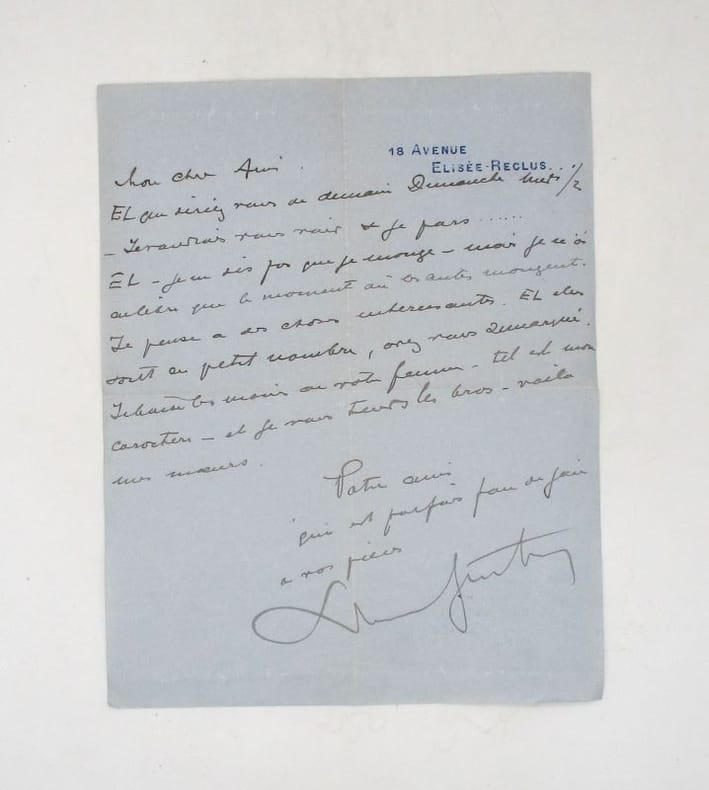 18 AVENUE
ELISÉE-RECLUS.
Mon cher Ami.
Et que diriez vous de demain Dimanche 1/2
- Je voudrais vous voir & je pars ......
Et - je ne dis pas que je mange - mais je n'ai
que le moment où les autres mangent.
Je pense a des choses interessantes. Et elles
sont en petit nombre, avez vous remarqué.
Je baise les mains de votre femme - tel est mon
caractere - et je vous tends les bras - voila
mes mœurs.
Votre ami
qui est parfois fou de joie
a vos pieces